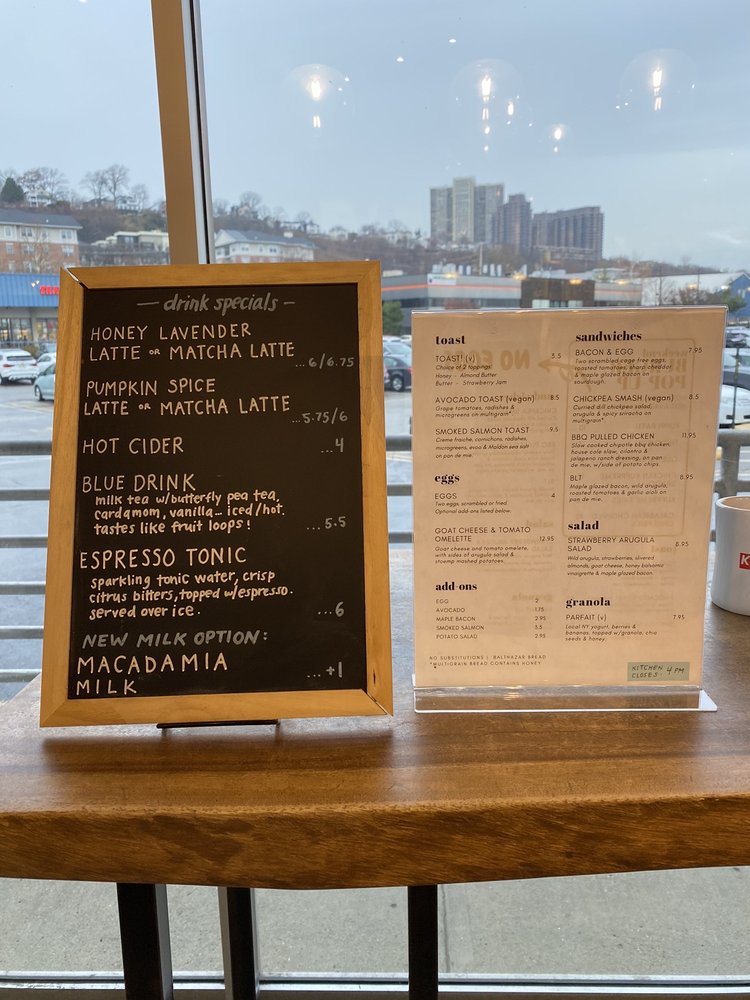 — drink specials —
HONEY LAVENDER
LATTE OR MATCHA LATTE
...6/6.75
PUMPKIN SPICE
LATTE OR MATCHA LATTE
...5.75/6
HOT CIDER ...4
BLUE DRINK
milk tea w/butterfly pea tea,
cardamom, vanilla... iced/hot.
tastes like fruit loops! ...5.5
ESPRESSO TONIC
sparkling tonic water, crisp
citrus bitters, topped w/espresso.
served over ice. ...6
NEW MILK OPTION:
MACADAMIA
MILK ...+1
toast
TOAST! (v) 3.5
Choice of 2 toppings:
Honey - Almond Butter
Butter - Strawberry Jam
AVOCADO TOAST (vegan) 8.5
Grape tomatoes, radishes &
microgreens on multigrain*
SMOKED SALMON TOAST 9.5
Creme fraiche, cornichons, radishes,
microgreens, evoo & Maldon sea salt
on pan de mie.
eggs
EGGS 4
Two eggs, scrambled or fried.
Optional add-ons listed below.
GOAT CHEESE & TOMATO
OMELETTE 12.95
Goat cheese and tomato omelette,
with sides of arugula salad &
stoemp mashed potatoes.
add-ons
EGG 2
AVOCADO 1.75
MAPLE BACON 2.95
SMOKED SALMON 3.5
POTATO SALAD 2.95
NO SUBSTITUTIONS | BALTHAZAR BREAD
*MULTIGRAIN BREAD CONTAINS HONEY
sandwiches
BACON & EGG 7.95
Two scrambled cage free eggs,
roasted tomatoes, sharp cheddar
& maple glazed bacon on
sourdough.
CHICKPEA SMASH (vegan) 8.5
Curried dill chickpea salad,
arugula & spicy sriracha on
multigrain*
BBQ PULLED CHICKEN 11.95
Slow cooked chipotle bbq chicken,
house cole slaw, cilantro &
jalapeno ranch dressing, on pan
de mie, w/side of potato chips.
BLT 8.95
Maple glazed bacon, wild arugula,
roasted tomatoes & garlic aioli on
pan de mie.
salad
STRAWBERRY ARUGULA
SALAD 8.95
Wild arugula, strawberries, slivered
almonds, goat cheese, honey balsamic
vinaigrette & maple glazed bacon.
granola
PARFAIT (v) 7.95
Local NY yogurt, berries &
bananas, topped w/granola, chia
seeds & honey.
KITCHEN
CLOSES · 4 PM
K